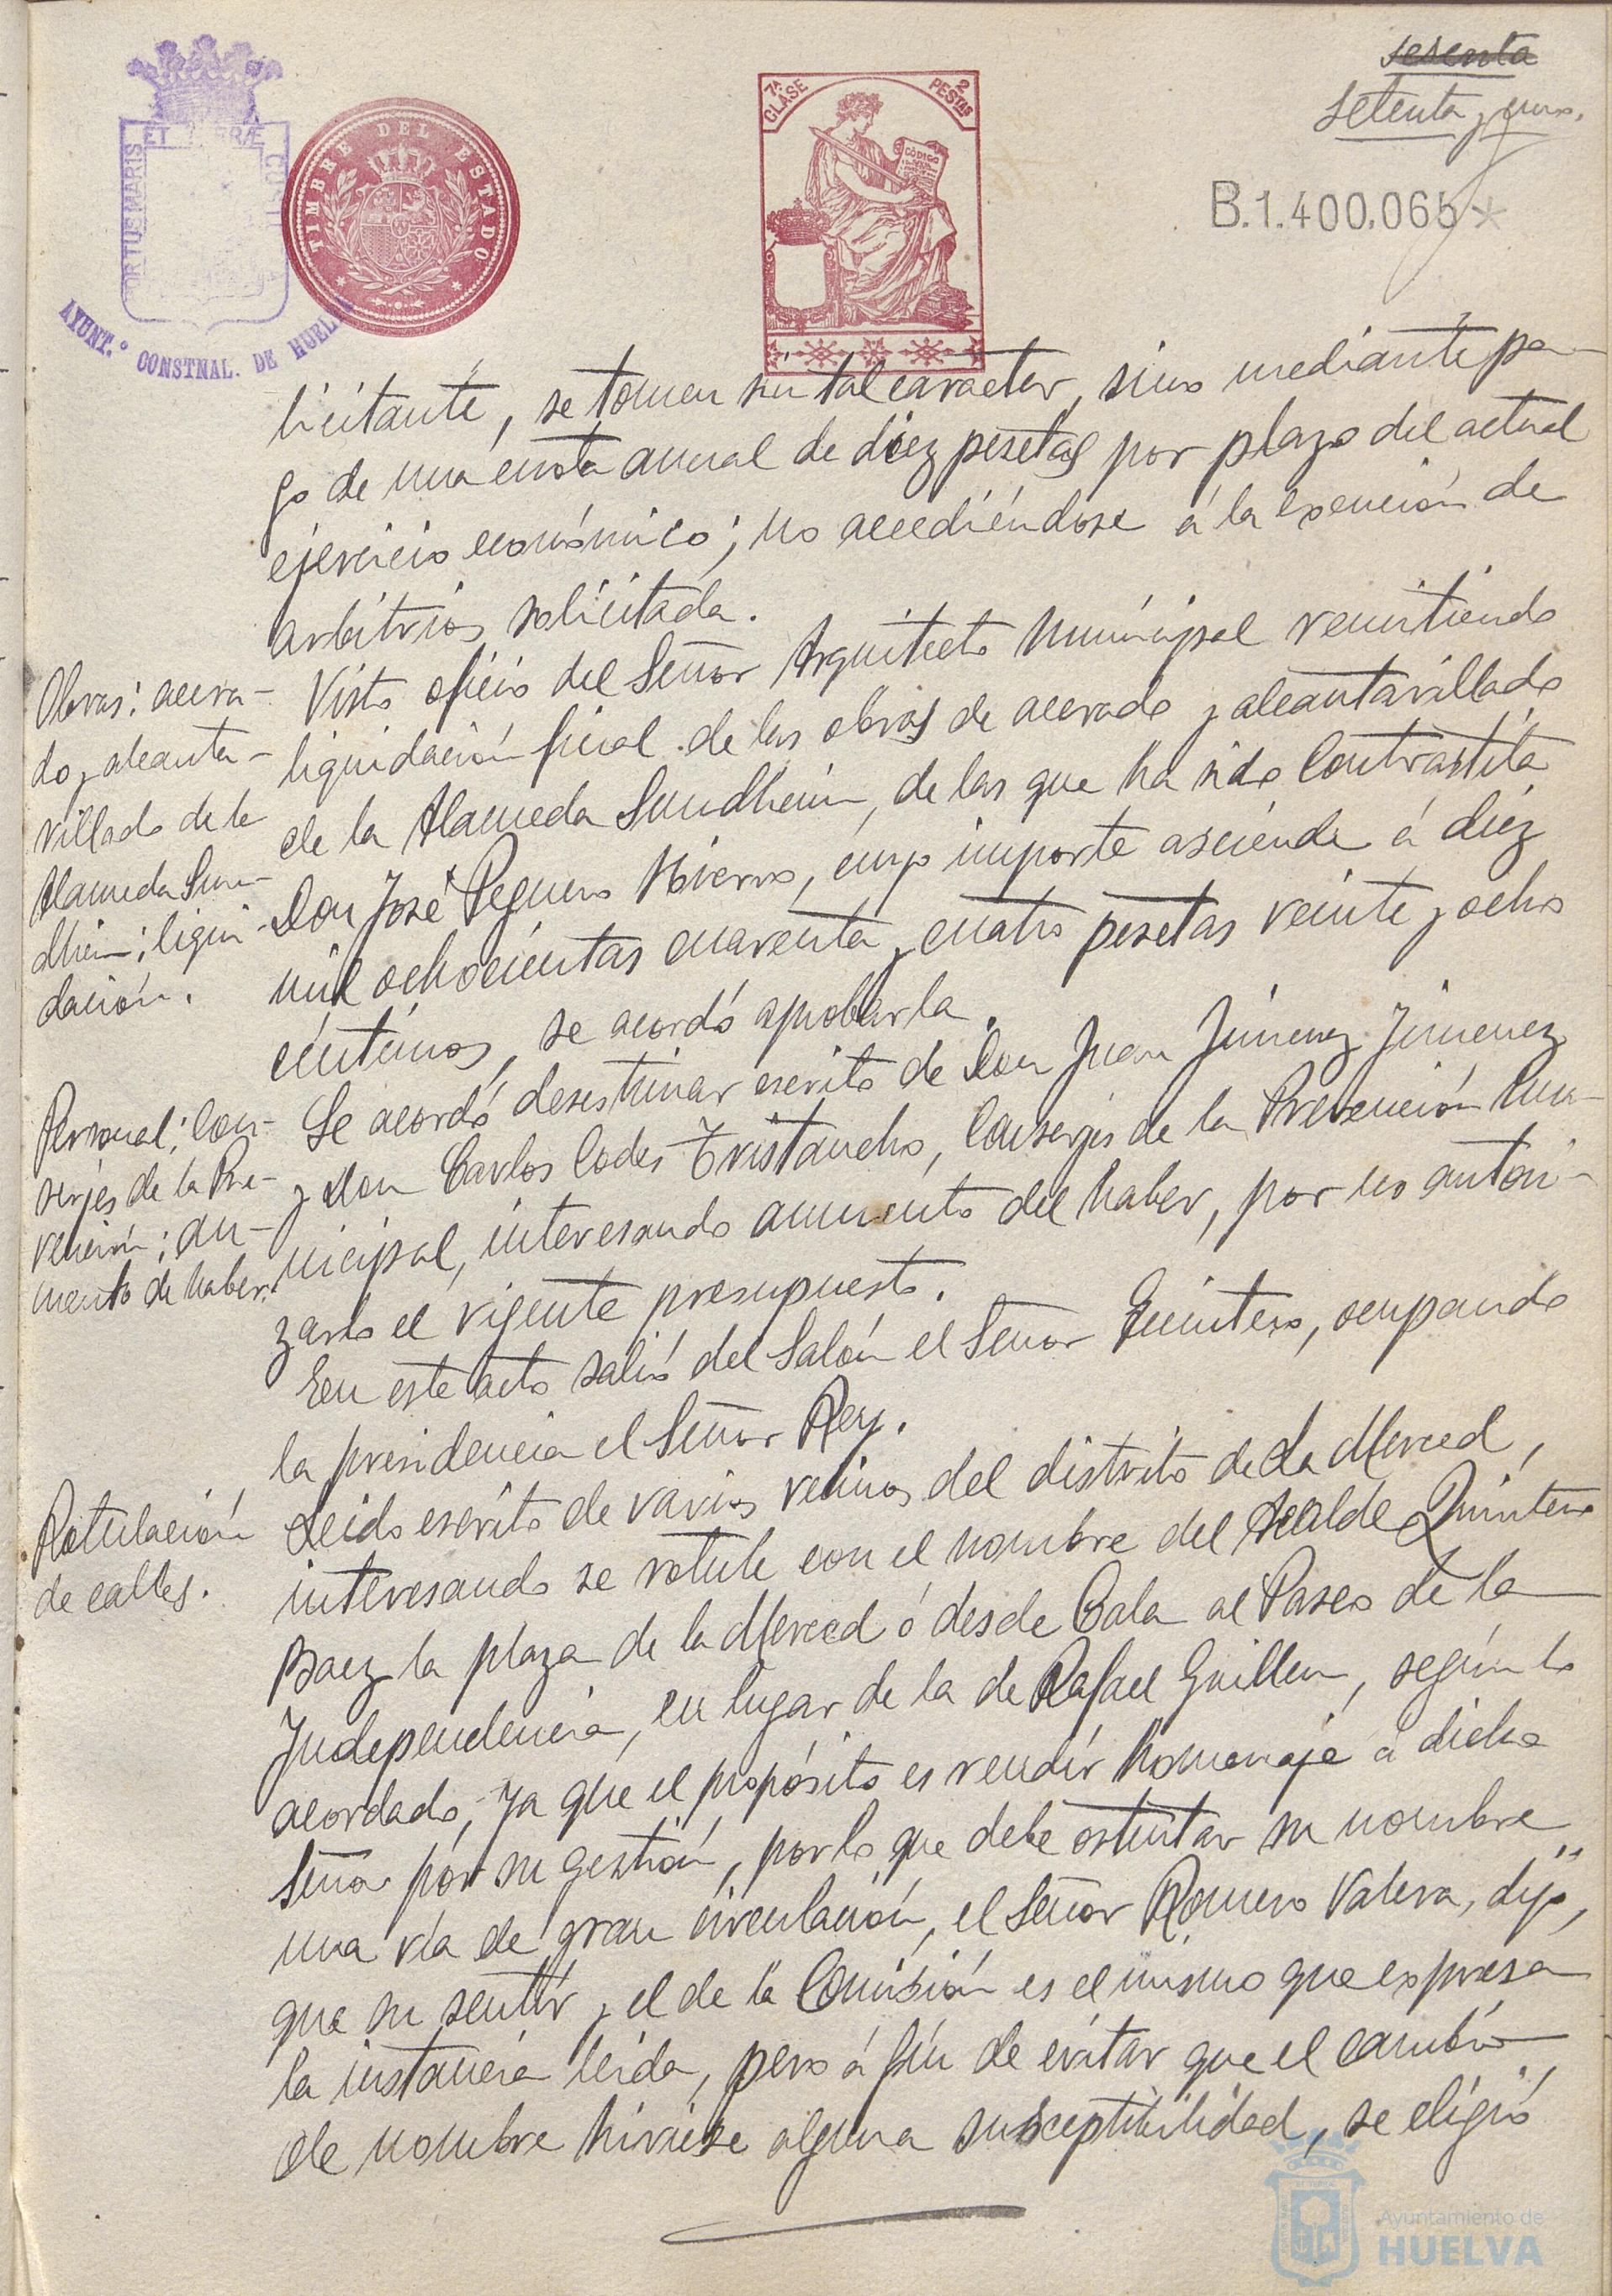 sesenta
setenta y uno.
PORTUS MARIS
ET TERRÆ
TIMBRE DEL ESTADO
7ª CLASE
2 PESTAS
CÓDIGO
B.1.400.065*
AYUNT.º CONSTNAL. DE HUELVA
licitante, se tomen sin tal caracter, sino mediante pa-
go de una cuota anual de diez pesetas por plazo del actual
ejercicio económico; no accediéndose á la exención de
arbitrios solicitada.
Obras: acera-
do y alcanta-
rillado de la
Alameda Sun-
dhein; liqui-
dación.
Visto oficio del Señor Arquitecto Municipal remitiendo
liquidación final de las obras de acerado y alcantarillado
de la Alameda Sundhein, de las que ha sido Contratista
Don José Peguero Hierro, cuyo importe asciende á diez
mil ochocientas cuarenta y cuatro pesetas veinte y ocho
céntimos, se acordó aprobarla.
Personal; Con-
serjes de la Pre-
vención; au-
mento de haber.
Se acordó desestimar escrito de Don Juan Jimenez Jimenez
y Don Carlos Codes Tristancho, Conserjes de la Prevención Mu-
nicipal, interesando aumento del haber, por no autori-
zarlo el vigente presupuesto.
En este acto salió del Salón el Señor Quintero, ocupando
la presidencia el Señor Rey.
Rotulación
de calles.
Leido escrito de varios vecinos del distrito de La Merced,
interesando se rotule con el nombre del Alcalde Quintero
Baez la plaza de la Merced ó desde Cala al Paseo de la
Independencia, en lugar de la de Rafael Guillen, según lo
acordado, ya que el propósito es rendir homenaje á dicho
Señor por su gestión, por lo que debe ostentar su nombre
una vía de gran circulación, el Señor Romero Valera, dijo,
que su sentir y el de la Comisión es el mismo que expresa
la instancia leida, pero á fin de evitar que el cambio
de nombre hiriese alguna susceptibilidad, se eligió
Ayuntamiento de
HUELVA